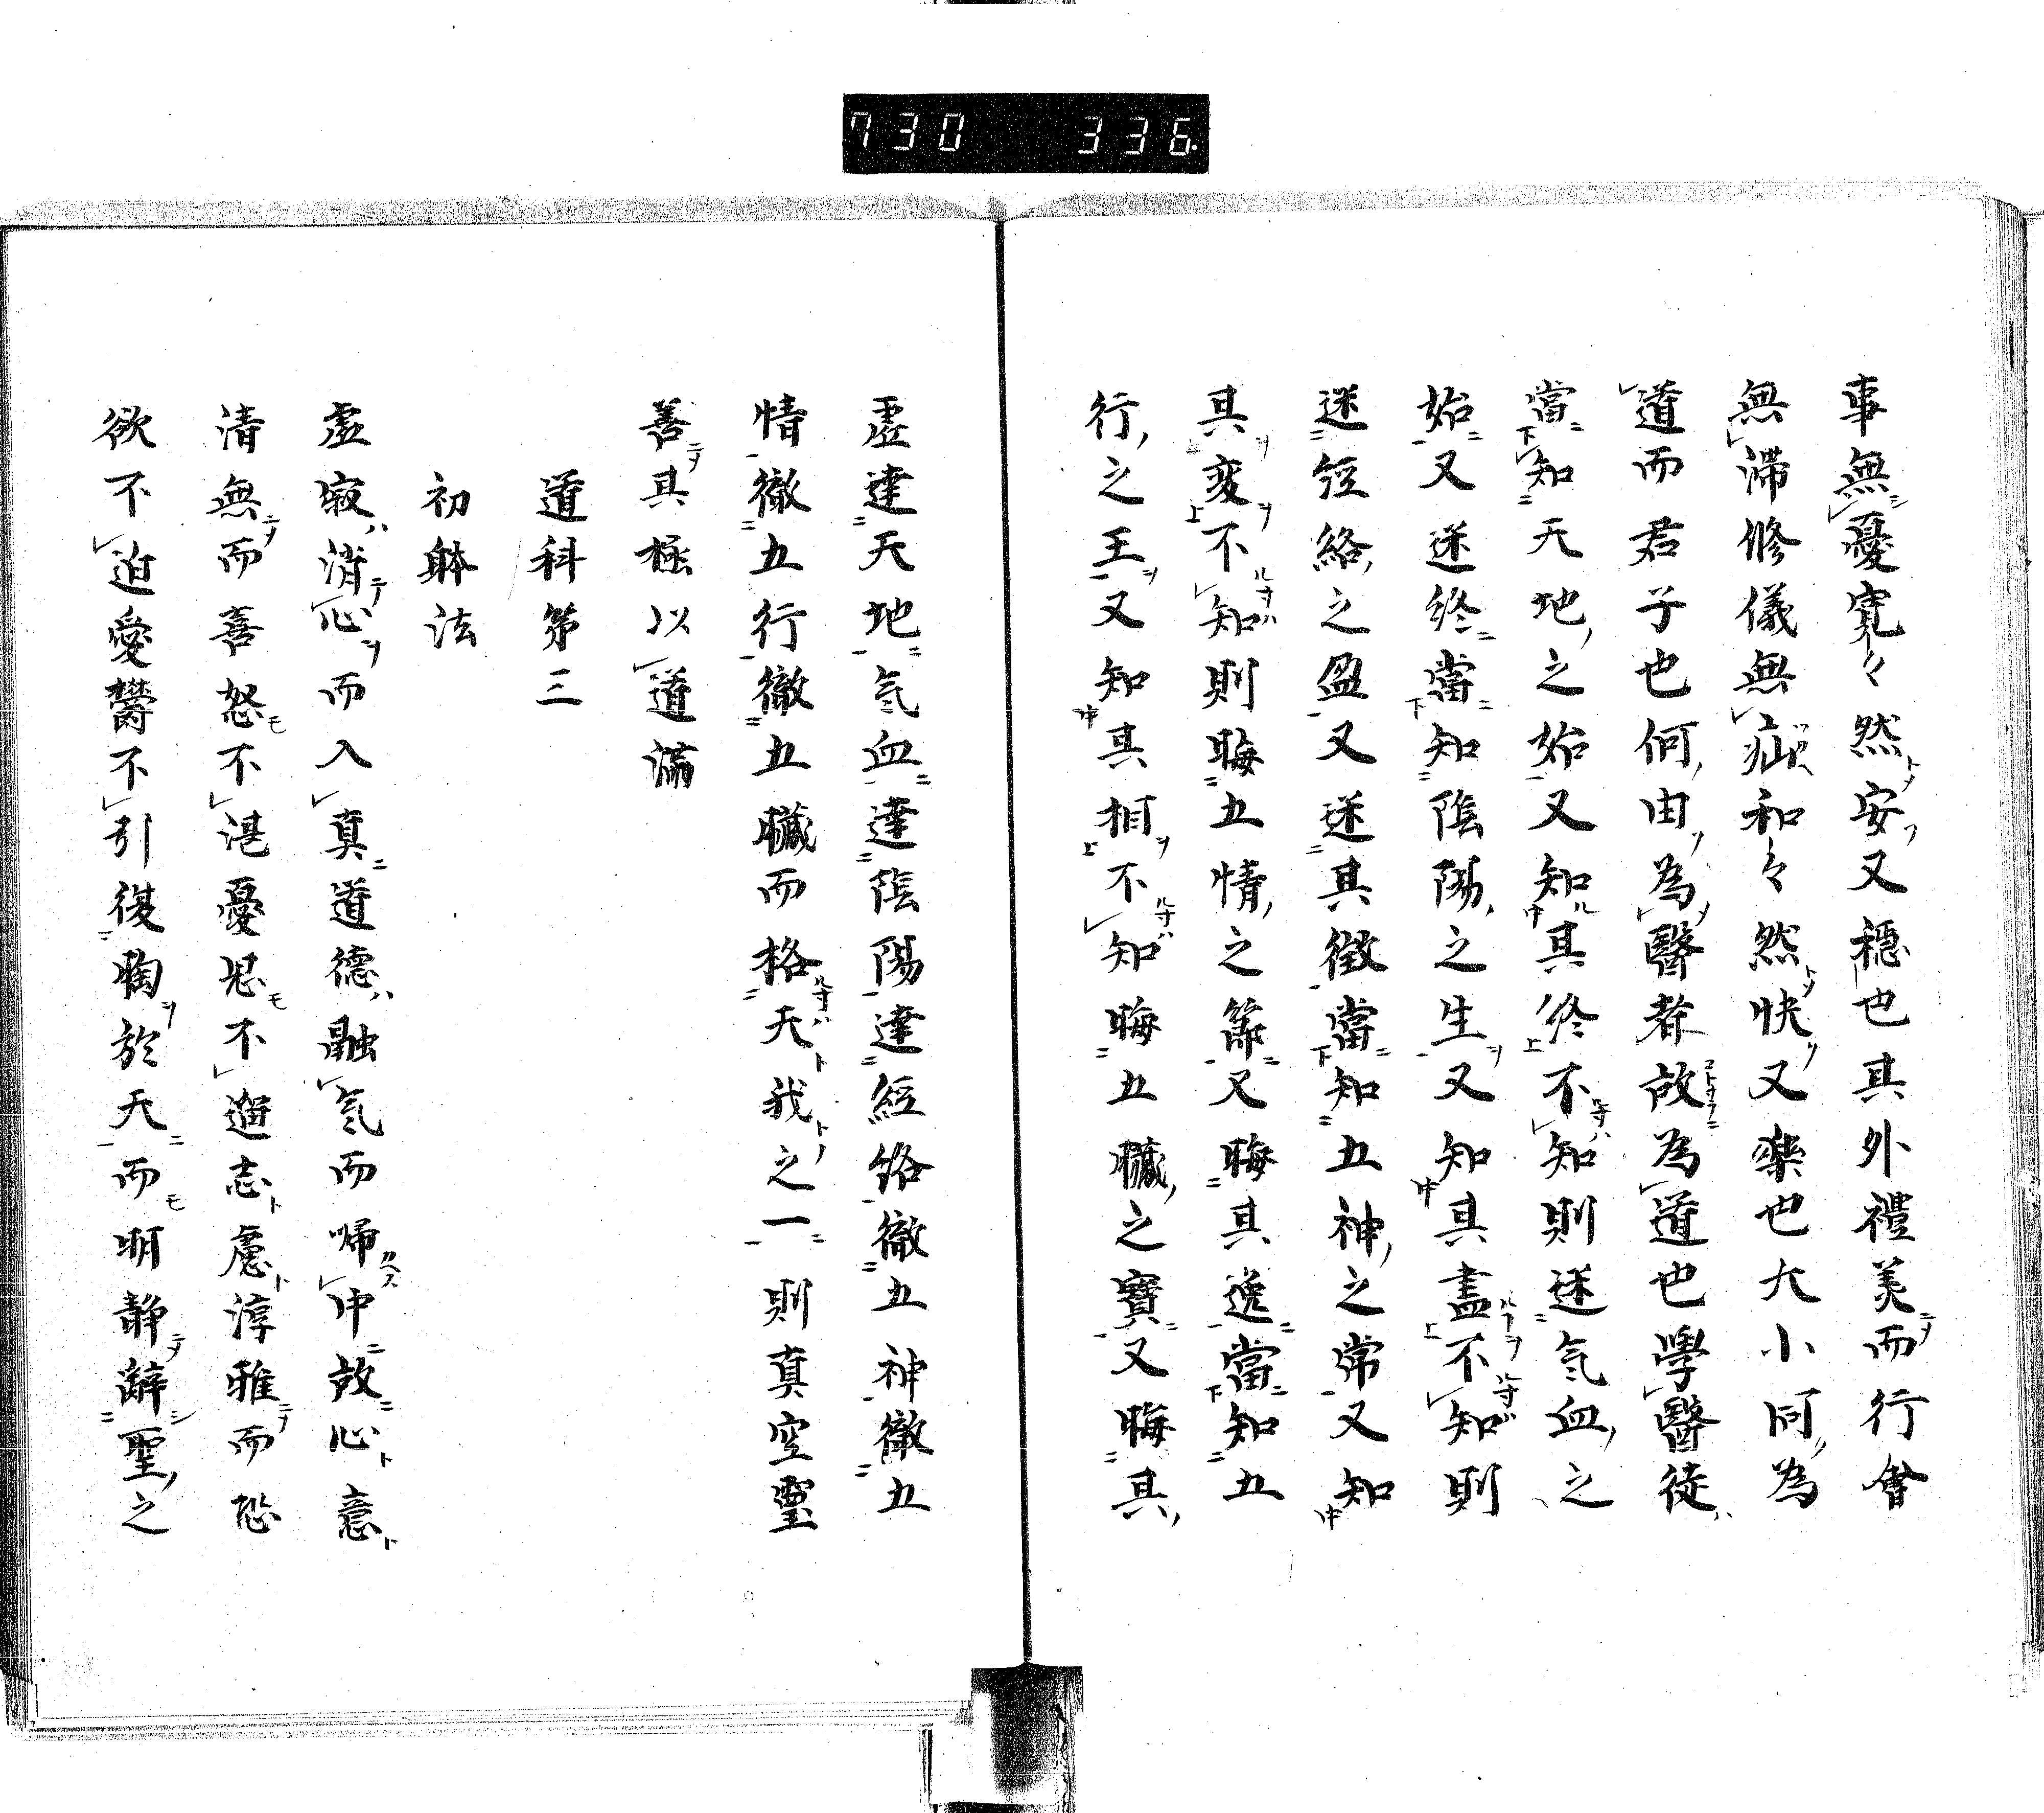 730 336
事無憂寛々然安又穏也其外禮美而行會
無滞修儀無疵和々然快又楽也大小同為
道而君子也何由為醫者故為道也學醫徒
當知天地之始又知其終不知則迷氣血之
始又迷終當知陰陽之生又知其盡不知則
迷經絡之盈又迷其徴當知五神之常又知
其変不知則晦五情之節又晦其逸當知五
行之王又知其相不知晦五臓之寶又晦其
虚達天地氣血達陰陽達経絡徹五神徹五
情徹五行徹五臓而格天我之一則真空靈
善其極以道満
道科第三
初躰法
虚寂消心而入真道德融氣而帰中故心意
清無而喜怒不湛憂思不遛志慮淳雅而恐
欲不迫愛欝不引復陶於天而明静辭聖之